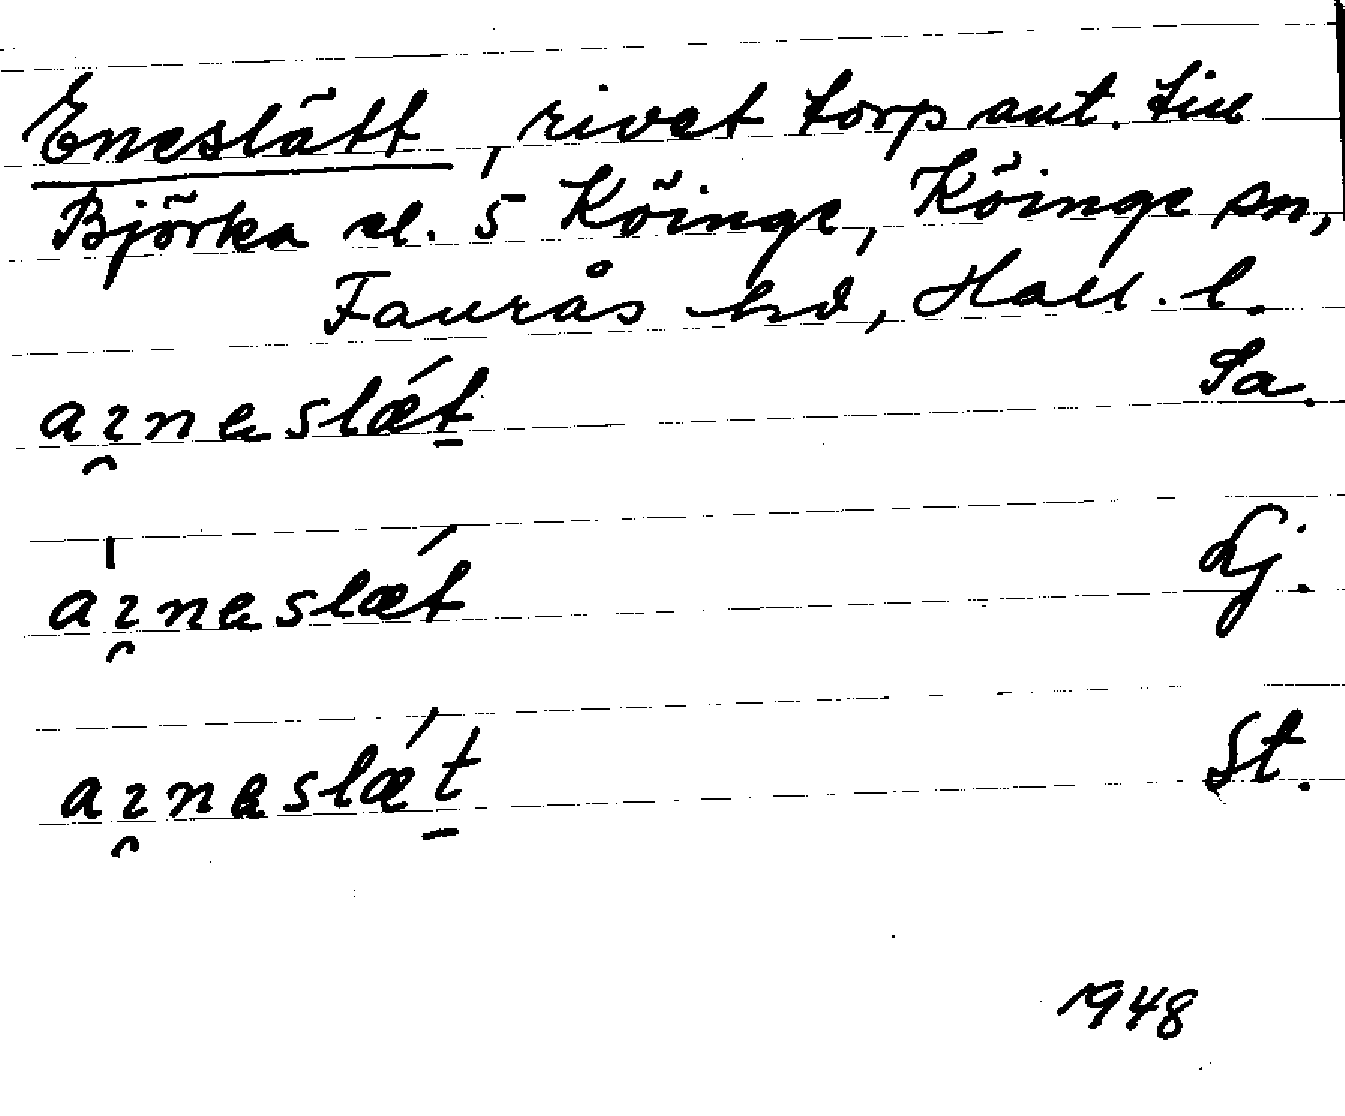 Eneslätt, rivet torp ant. till
Björka el. 5 Köinge, Köinge sn,
Faurås hd, Hall. l.
aı̯neslǽt̠ Sa.
aı̯neslǽt Lj.
aı̯neslǽt̠ St.
1948